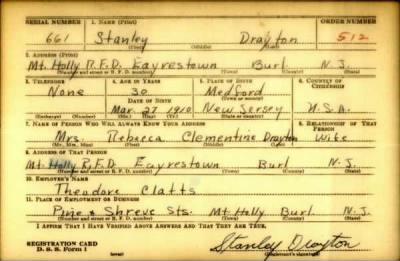 SERIAL NUMBER 1. NAME (Print) ORDER NUMBER
661 Stanley Drayton 512
(First) (Middle) (Last)
2. ADDRESS (Print)
Mt. Holly R.F.D. Eayrestown Burl N.J.
(Number and street or R. F. D. number) (Town) (County) (State)
3. TELEPHONE 4. AGE IN YEARS 5. PLACE OF BIRTH 6. COUNTRY OF CITIZENSHIP
None 30 Medford
DATE OF BIRTH (Town or county)
Mar. 27 1910 New Jersey U.S.A.
(Exchange) (Number) (Mo.) (Day) (Yr.) (State or country)
7. NAME OF PERSON WHO WILL ALWAYS KNOW YOUR ADDRESS 8. RELATIONSHIP OF THAT PERSON
Mrs. Rebeca Clementine Drayton Wife
(Mr., Mrs., Miss) (First) (Middle) (Last)
9. ADDRESS OF THAT PERSON
Mt Holly R.F.D. Eayrestown Burl N.J.
(Number and street or R. F. D. number) (Town) (County) (State)
10. EMPLOYER'S NAME
Theodore Clatts
11. PLACE OF EMPLOYMENT OR BUSINESS
Pine & Shreve Sts. Mt Holly Burl. N.J.
(Number and street or R. F. D. number) (Town) (County) (State)
I AFFIRM THAT I HAVE VERIFIED ABOVE ANSWERS AND THAT THEY ARE TRUE.
REGISTRATION CARD
D. S. S. Form 1 (over) Stanley Drayton
(Registrant's signature)